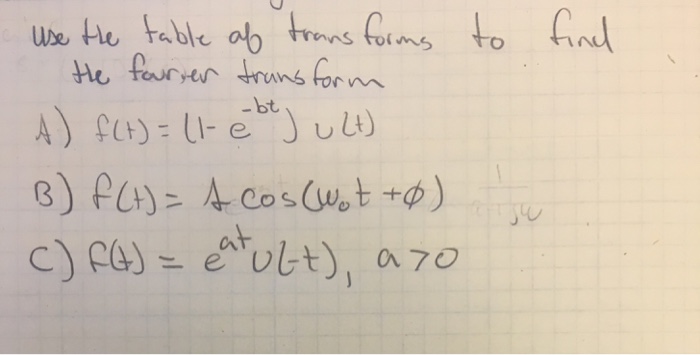 use the table of transforms to find
the fourier transform
A) f(t) = (1 - e^-bt) u(t)
B) f(t) = A cos(ω₀t + φ)
C) f(t) = e^at u(-t), a > 0